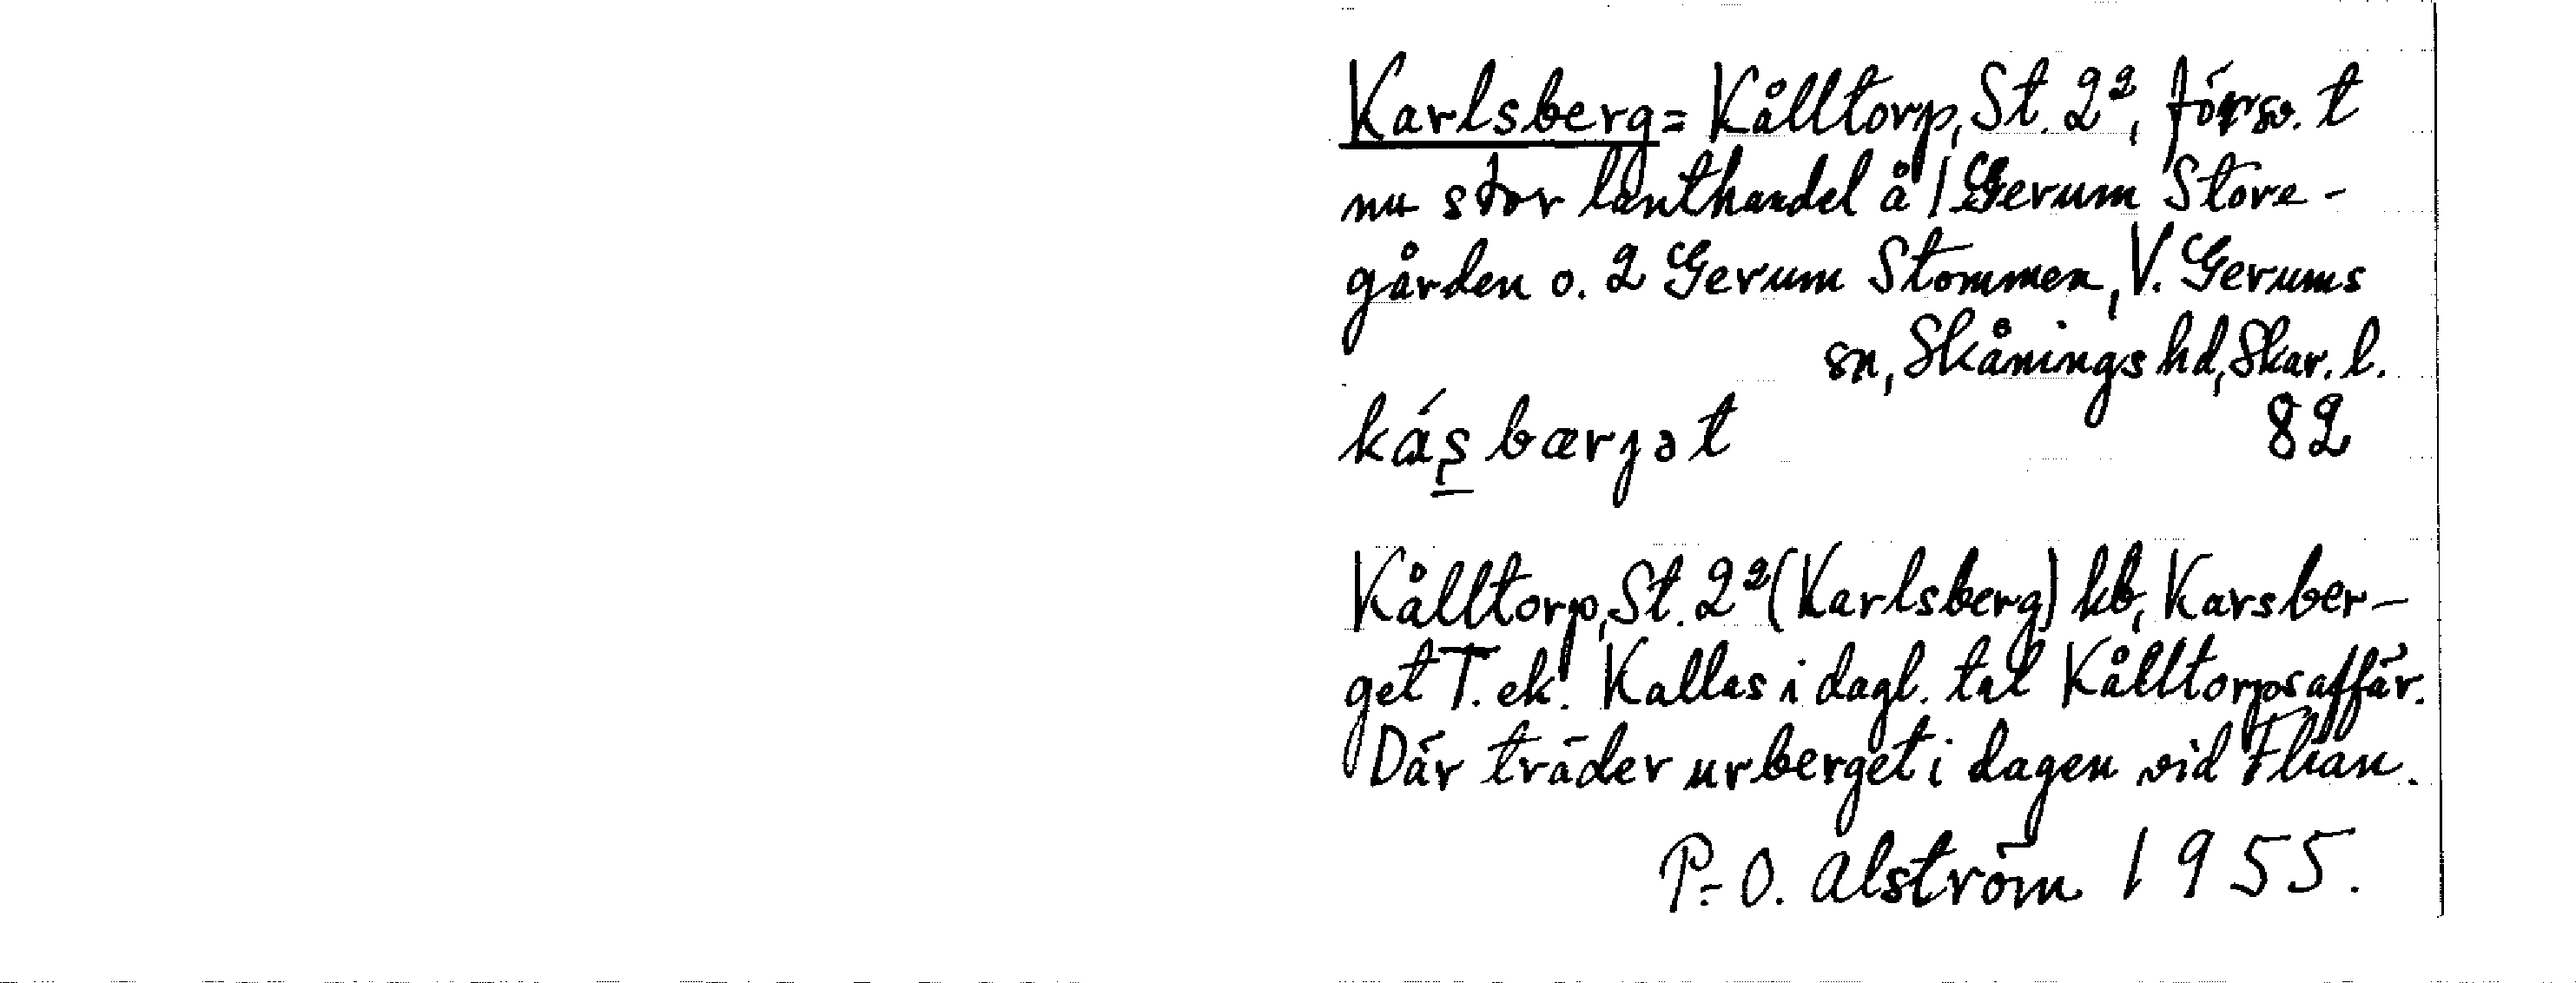 Karlsberg = Kålltorp, St. 2², försv. t
nu stor lanthandel å 1 Gerum Store-
gården o. 2 Gerum Stommen, V. Gerums
sn, Skånings hd, Skar. l.
ká̱ʂbærjət 82
Kålltorp, St. 2² (Karlsberg) hb, Karsber-
get T. ek. Kallas i dagl. tal Kålltorpsaffär.
Där träder urberget i dagen vid Flian.
P.-O. Alström 1955.